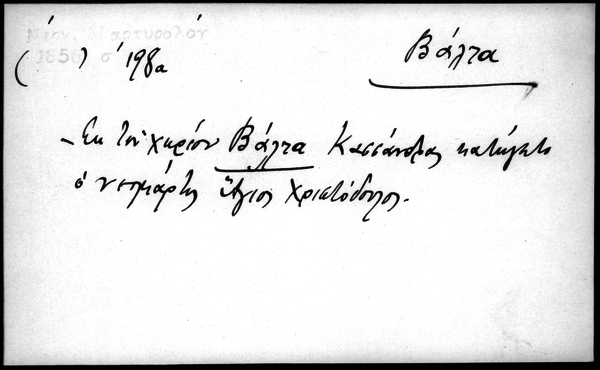 Νεον Μαρτυρολόγ
1856 σ
( ) σ 198α
Βάλτα
– Εκ του χωρίου Βάλτα Κασσάνδρας κατάγεται
ο νεομάρτυς Άγιος Χριστόδουλος.